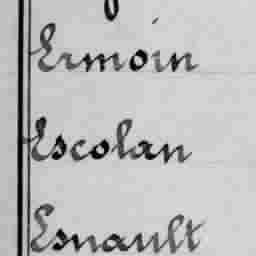 Ermoin
Escolan
Esnault